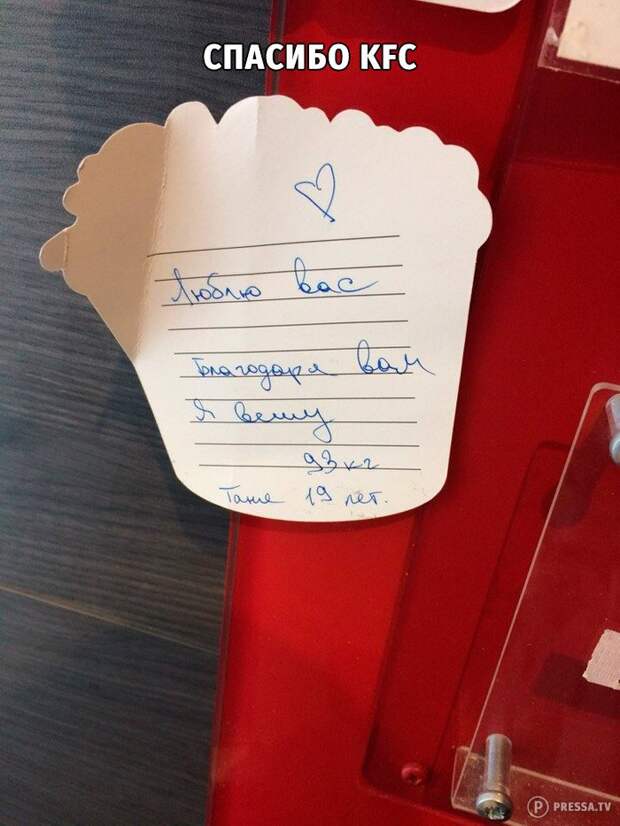 СПАСИБО KFC
Люблю вас
Благодаря вам
Я вешу
93 кг
Тане 19 лет.
PRESSA.TV